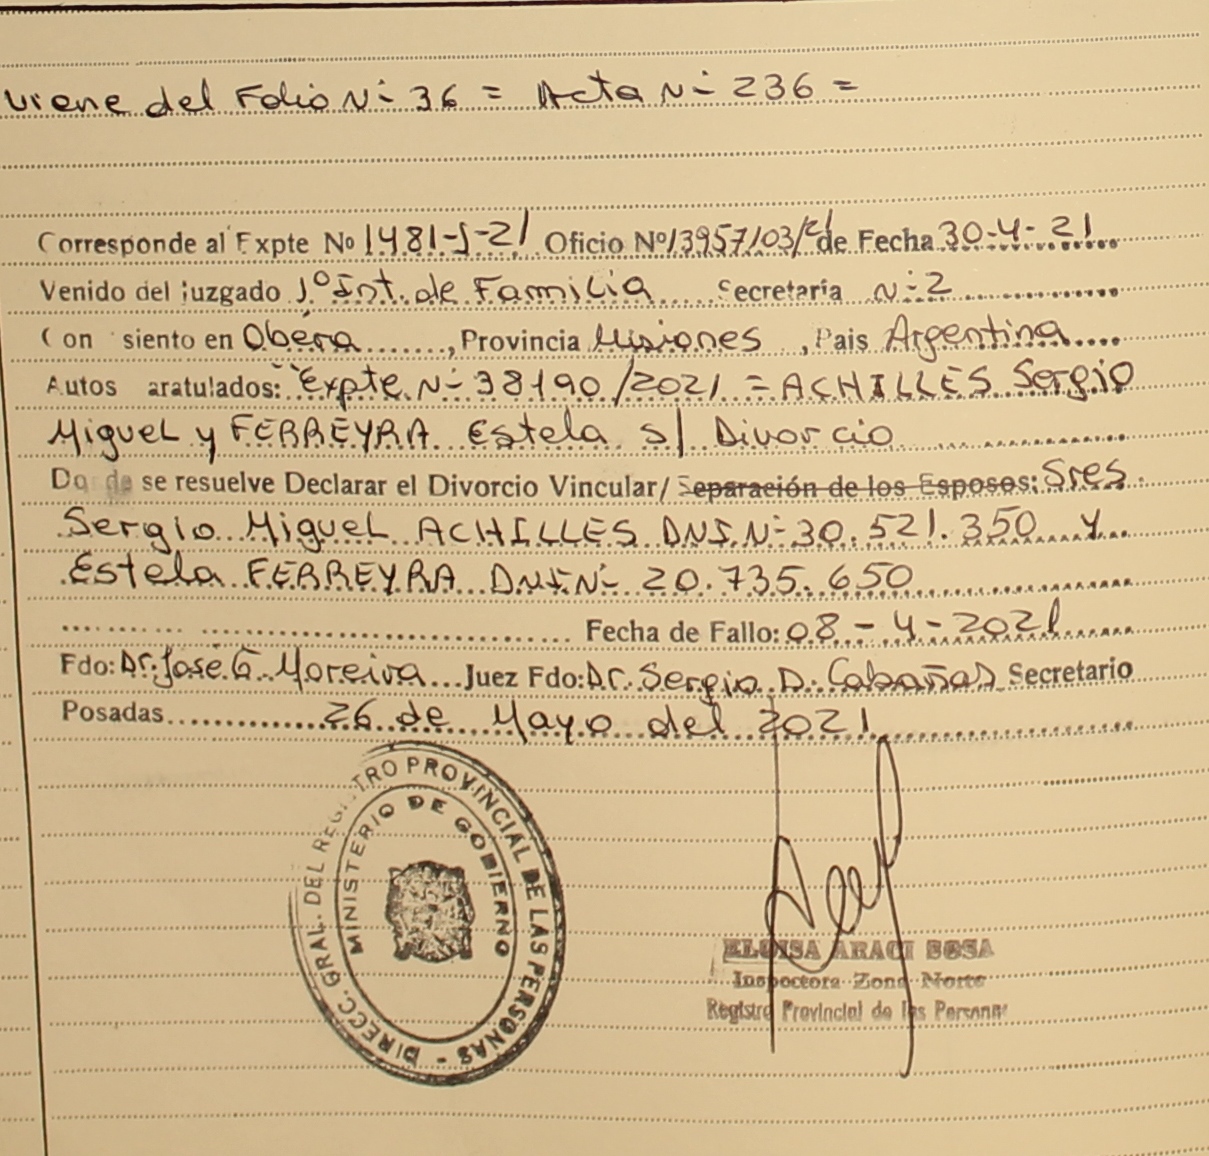 viene del Folio Nº 36 = Acta Nº 236 =
Corresponde al Expte Nº 1481-J-21 Oficio Nº 13957103/21 de Fecha 30-4-21
Venido del juzgado 1º Inst. de Familia Secretaria Nº 2
Con siento en Oberá, Provincia Misiones, Pais Argentina
Autos aratulados: "Expte Nº 38190/2021 = ACHILLES Sergio
Miguel y FERREYRA Estela s/ Divorcio
se resuelve Declarar el Divorcio Vincular/ Separación de los Esposos: Sres
Sergio Miguel ACHILLES DNI Nº 30.521.350 y
Estela FERREYRA DNI Nº 20.735.650
Fecha de Fallo: 08-4-2021
Fdo: Dr. José G. Moreira Juez Fdo: Dr. Sergio D. Cabañas Secretario
Posadas 26 de Mayo del 2021
DIRECC. GRAL. DEL REGISTRO PROVINCIAL DE LAS PERSONAS -
MINISTERIO DE GOBIERNO
ELOISA ARACI SOSA
Inspectora Zona Norte
Registro Provincial de las Personas